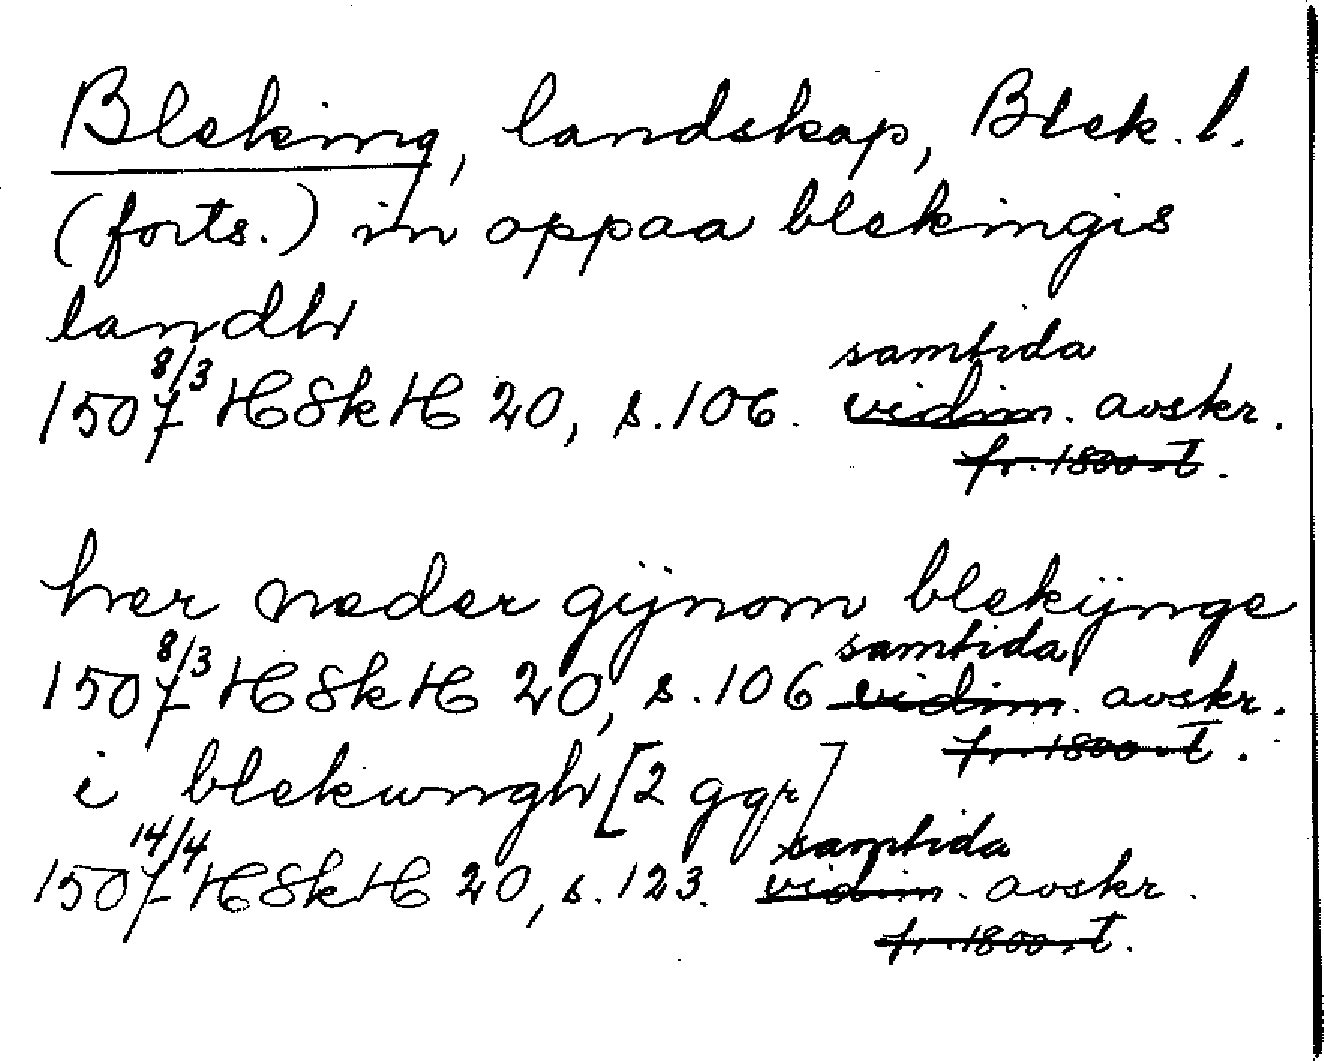 Bleking, landskap, Blek. l.
(forts.) in oppaa blekingis
landh
1507 8/3 HSkH 20, s. 106. samtida vidim. avskr.
fr. 1800-t.
her neder gijnom blekijnge
1507 8/3 HSkH 20, s. 106 samtida vidim. avskr.
fr. 1800-t.
i blekungh [2 ggr]
1507 14/4 HSkH 20, s. 123. samtida vidim. avskr.
fr. 1800-t.